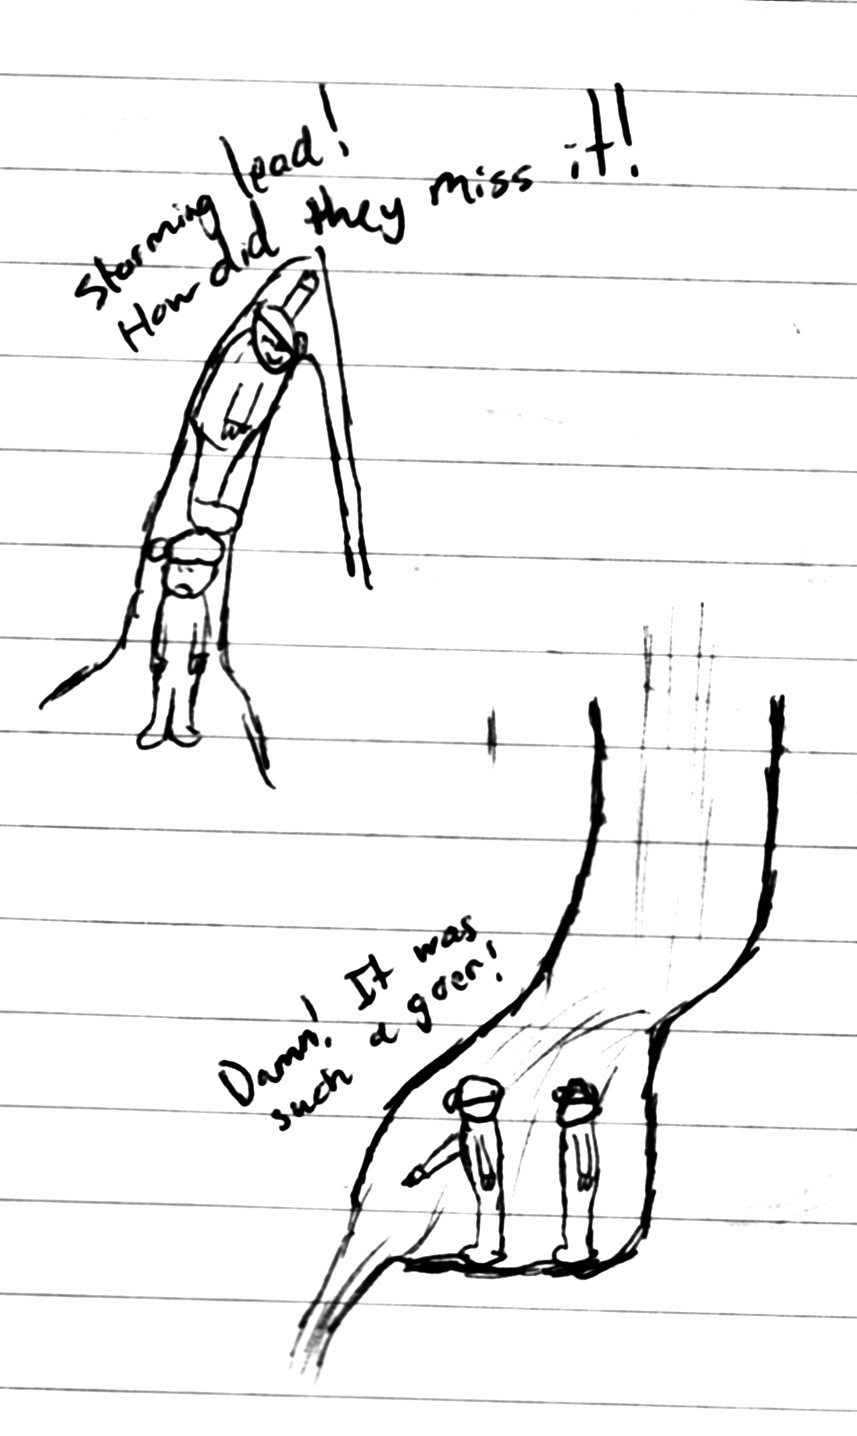 Storming lead!
How did they miss it!
Damn! It was
such a goer!